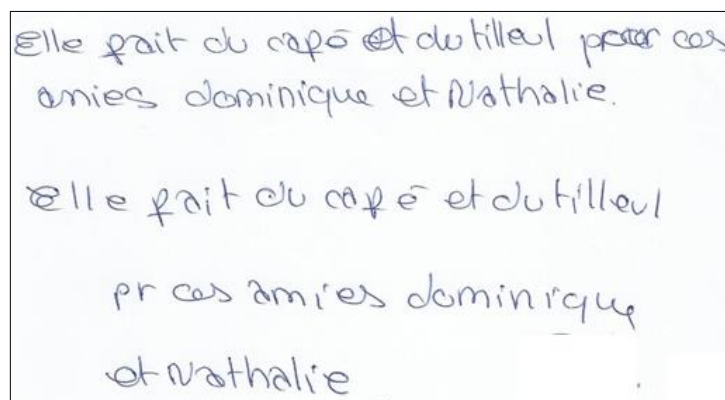 Elle fait du café et du tilleul pour ces
amies dominique et Nathalie.
Elle fait du café et du tilleul
pr ces amies dominique
et Nathalie